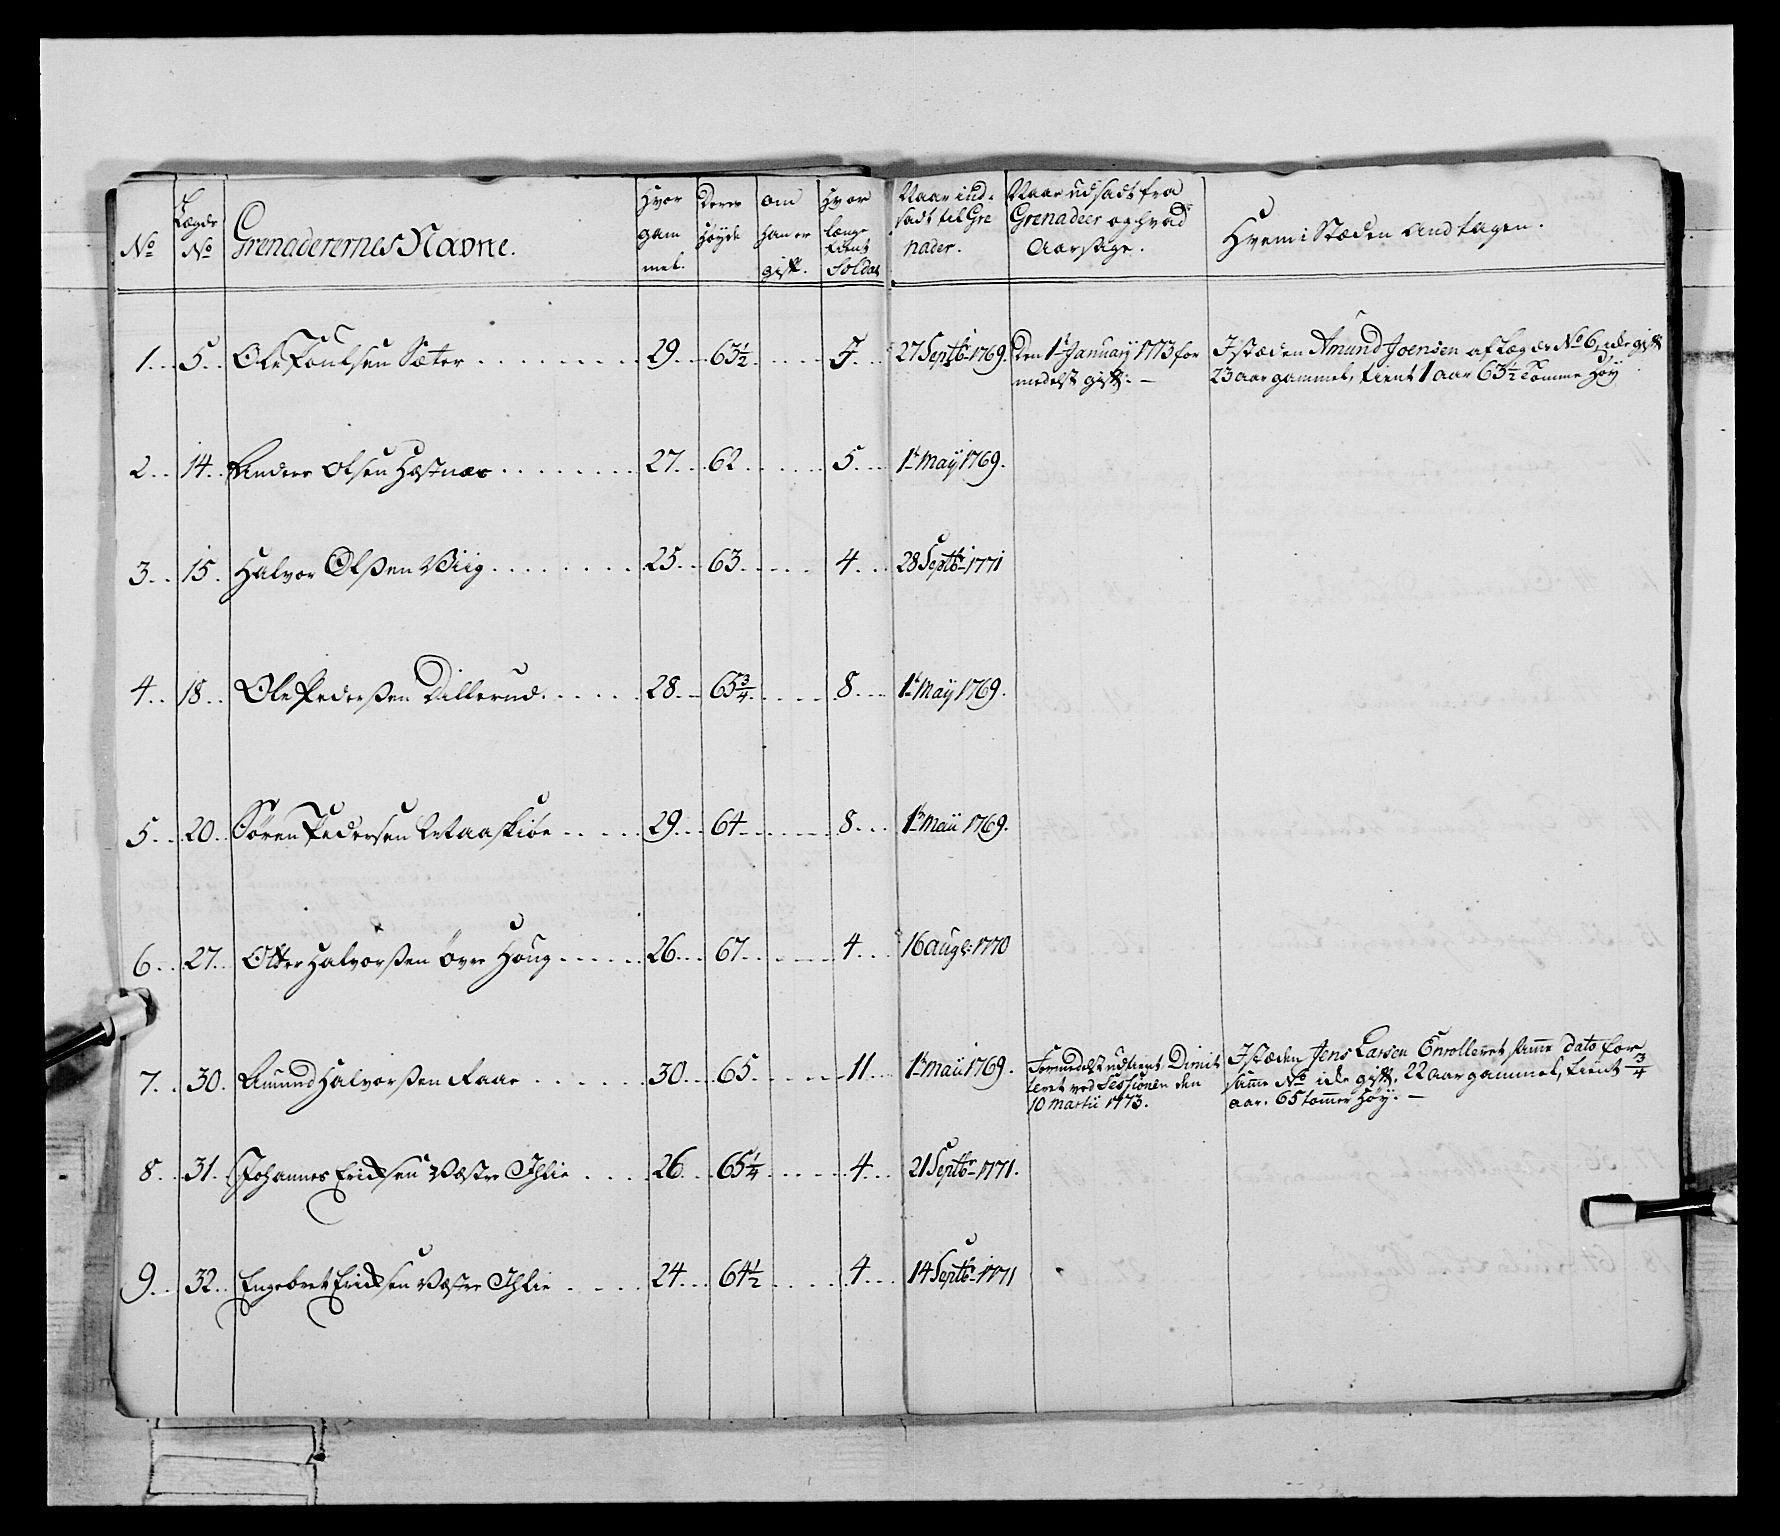 No
Lægds No
Grenaderernes Navne.
Hvor gam mel.
Deres Høyde
om han er gift.
Hvor længe tient Soldat
Naar ind-sadt til Gre nader.
Naar udsadt fra Grenadeer og hvad Aarsage.
Hvem i Stæden andtagen.
1. 5. Ole Poulsen Sæter 29 63½ 5 27 Septbr 1769. Den 1te January 1773 for medelst gift. I stæden Amund Joensen af Lægds No 6, icke gift
23 aar gammel, tient 1 aar 63½ Tomme Høy
2. 14. Anders Olsen Hestnæs 27 62 5 1te Maÿ 1769.
3. 15. Halvor Olsen Viig 25 63 4 28 Septbr 1771
4. 18. Ole Pedersen Dillerud 28 63¾ 8 1te Maÿ 1769.
5. 20. Sören Pedersen 29 64 8 1te Maii 1769.
6. 27. Otter Halvorsen Övre Houg 26 67 4 16 Aug: 1770
7. 30. Amund Halvorsen Raae 30 65 11 1te Maii 1769. Formedelst udtient Dimit
teret ved Sessionen den
10 Martii 1773.
I stæden Jens Larsen Enrolleret samme dato for
samme No icke gift. 22 aar gammel, tient ¾
aar. 65 tommer Høy.
8. 31. Johannes Ericksen Væstre Ihlie 26 65¼ 4 21 Septbr 1771.
9. 32. Engebret Ericksen Væstre Ihlie 24 64½ 4 14 Septbr 1771